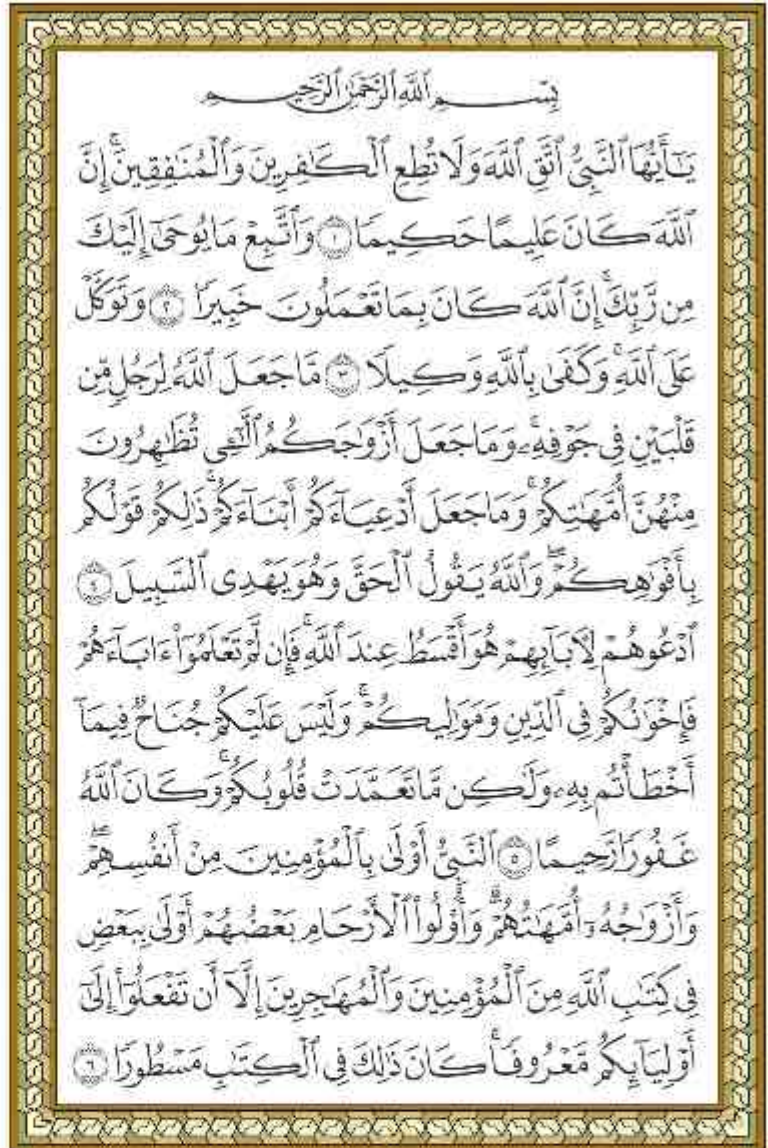 بِسْمِ ٱللَّهِ ٱلرَّحْمَٰنِ ٱلرَّحِيمِ
يَٰٓأَيُّهَا ٱلنَّبِىُّ ٱتَّقِ ٱللَّهَ وَلَا تُطِعِ ٱلْكَٰفِرِينَ وَٱلْمُنَٰفِقِينَ ۗ إِنَّ
ٱللَّهَ كَانَ عَلِيمًا حَكِيمًا ١ وَٱتَّبِعْ مَا يُوحَىٰٓ إِلَيْكَ
مِن رَّبِّكَ ۚ إِنَّ ٱللَّهَ كَانَ بِمَا تَعْمَلُونَ خَبِيرًا ٢ وَتَوَكَّلْ
عَلَى ٱللَّهِ ۚ وَكَفَىٰ بِٱللَّهِ وَكِيلًا ٣ مَّا جَعَلَ ٱللَّهُ لِرَجُلٍ مِّن
قَلْبَيْنِ فِى جَوْفِهِۦ ۚ وَمَا جَعَلَ أَزْوَٰجَكُمُ ٱلَّٰٓـِٔى تُظَٰهِرُونَ
مِنْهُنَّ أُمَّهَٰتِكُمْ ۚ وَمَا جَعَلَ أَدْعِيَآءَكُمْ أَبْنَآءَكُمْ ۚ ذَٰلِكُمْ قَوْلُكُم
بِأَفْوَٰهِكُمْ ۖ وَٱللَّهُ يَقُولُ ٱلْحَقَّ وَهُوَ يَهْدِى ٱلسَّبِيلَ ٤
ٱدْعُوهُمْ لِءَابَآئِهِمْ هُوَ أَقْسَطُ عِندَ ٱللَّهِ ۚ فَإِن لَّمْ تَعْلَمُوٓا۟ ءَابَآءَهُمْ
فَإِخْوَٰنُكُمْ فِى ٱلدِّينِ وَمَوَٰلِيكُمْ ۚ وَلَيْسَ عَلَيْكُمْ جُنَاحٌ فِيمَآ
أَخْطَأْتُم بِهِۦ وَلَٰكِن مَّا تَعَمَّدَتْ قُلُوبُكُمْ ۚ وَكَانَ ٱللَّهُ
غَفُورًا رَّحِيمًا ٥ ٱلنَّبِىُّ أَوْلَىٰ بِٱلْمُؤْمِنِينَ مِنْ أَنفُسِهِمْ ۖ
وَأَزْوَٰجُهُۥٓ أُمَّهَٰتُهُمْ ۗ وَأُو۟لُوا۟ ٱلْأَرْحَامِ بَعْضُهُمْ أَوْلَىٰ بِبَعْضٍ
فِى كِتَٰبِ ٱللَّهِ مِنَ ٱلْمُؤْمِنِينَ وَٱلْمُهَٰجِرِينَ إِلَّآ أَن تَفْعَلُوٓا۟ إِلَىٰٓ
أَوْلِيَآئِكُم مَّعْرُوفًا ۚ كَانَ ذَٰلِكَ فِى ٱلْكِتَٰبِ مَسْطُورًا ٦